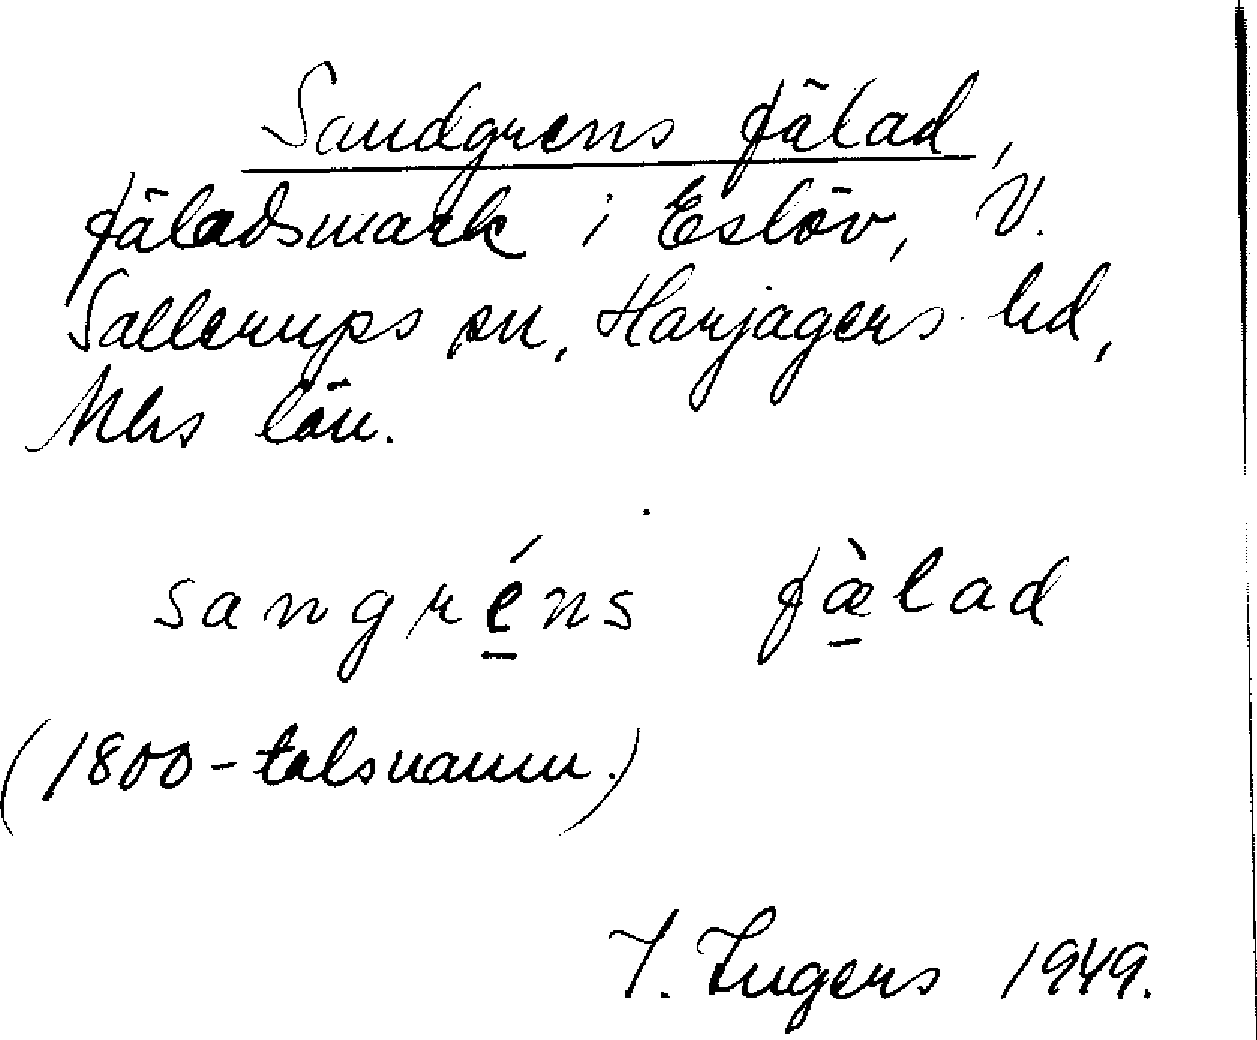 Sandgrens fälad,
fäladsmark i Eslöv, V.
Sallerups sn, Harjagers hd,
Mhs län.
sangréns fæ̀lad
(1800-talsnamn.)
I. Ingers 1949.